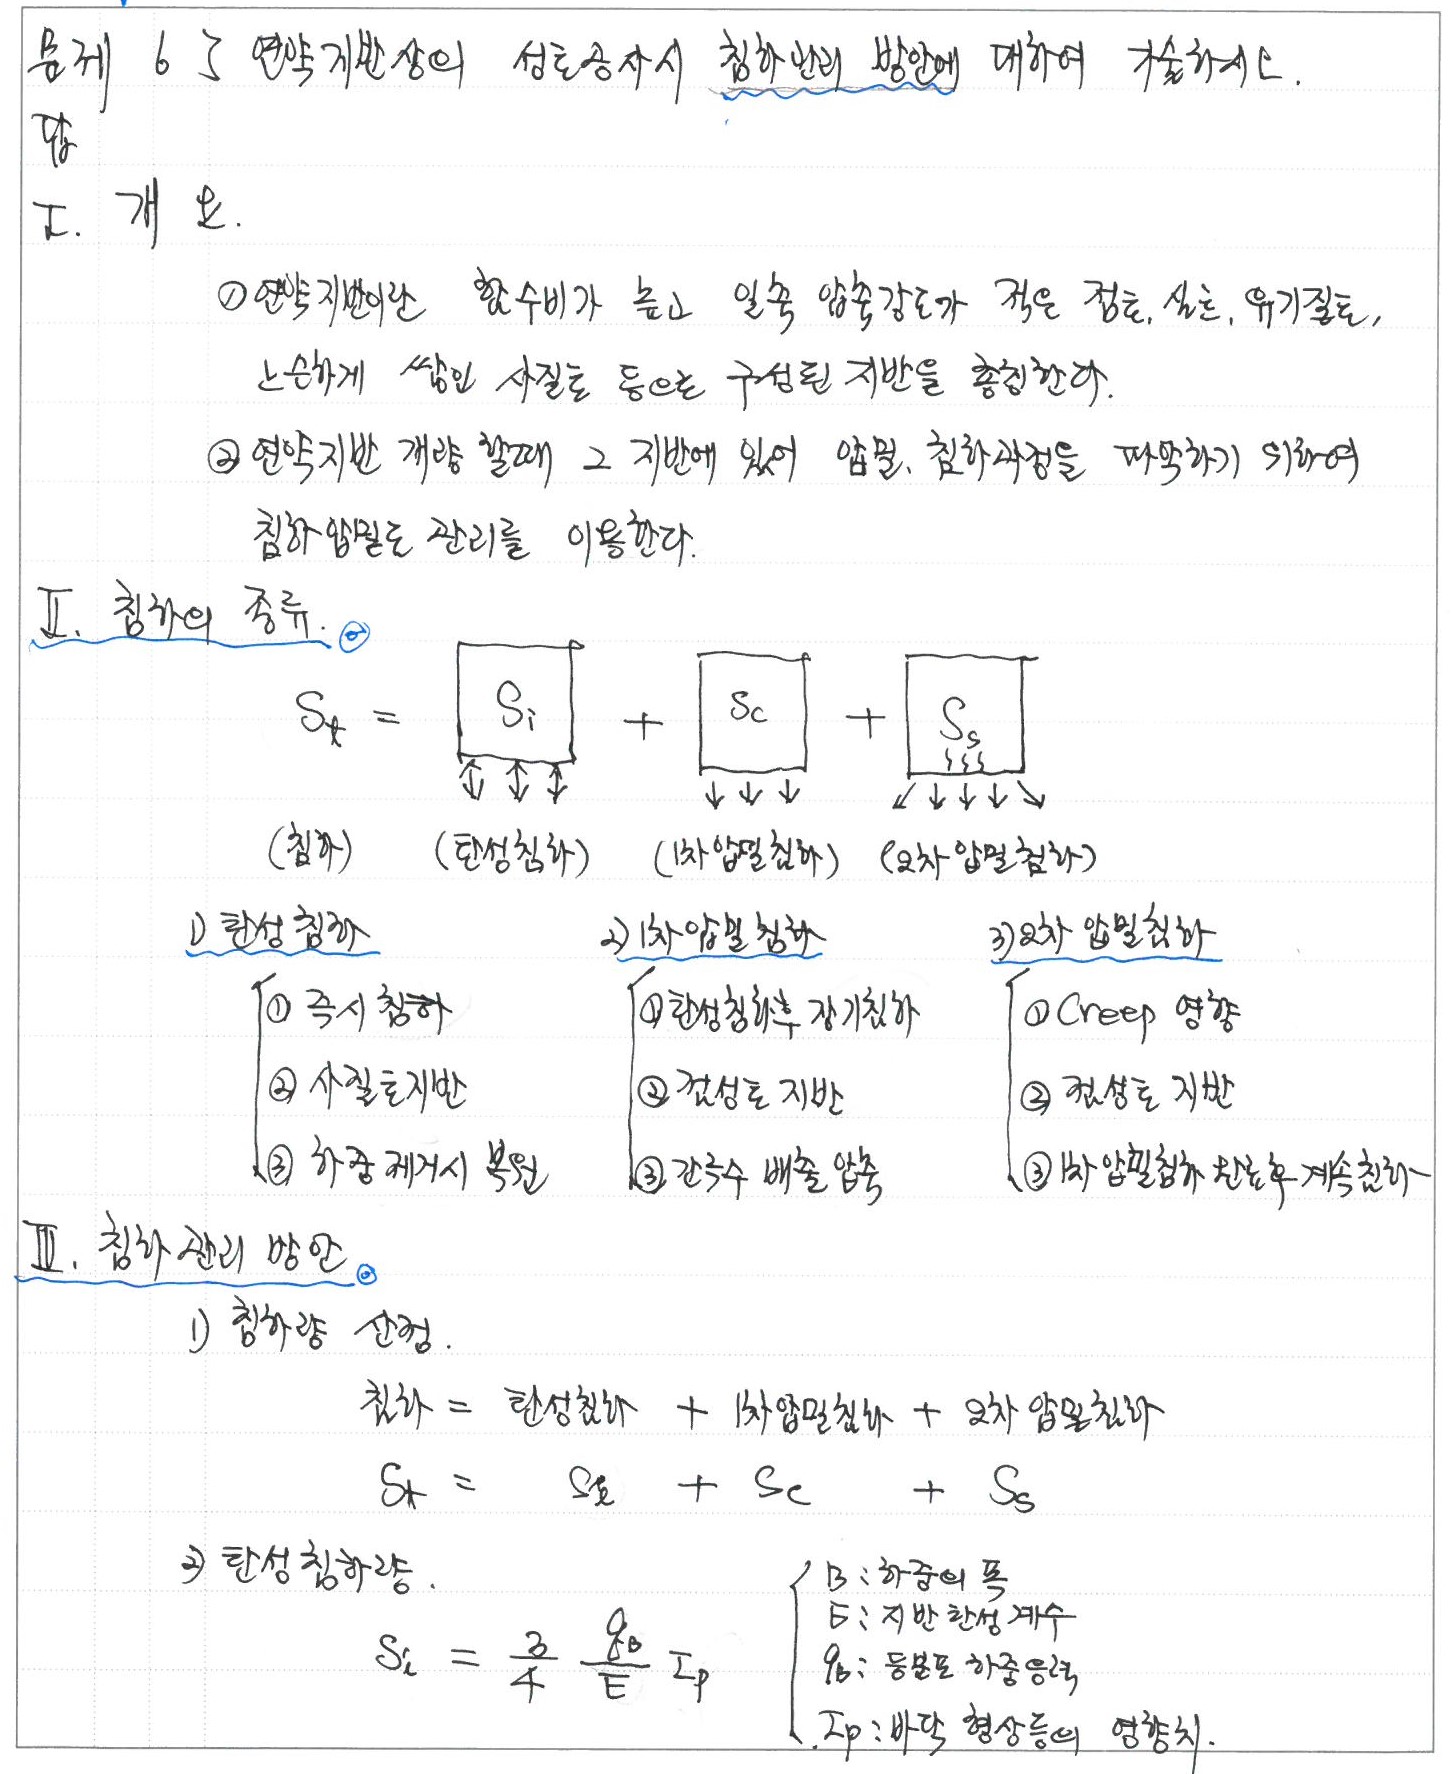 문제 6 > 연약지반상의 성토공사시 침하관리 방안에 대하여 기술하시오.
답
I. 개 요.
① 연약지반이란 함수비가 높고 일축 압축강도가 적은 점토, 실트, 유기질토,
느슨하게 쌓인 사질토 등으로 구성된 지반을 총칭한다.
② 연약지반 개량 할때 그 지반에 있어 압밀, 침하과정을 파악하기 위하여
침하압밀도 관리를 이용한다.
II. 침하의 종류.
St = Si + Sc + Ss
(침하) (탄성침하) (1차압밀침하) (2차압밀침하)
1) 탄성침하 2) 1차압밀침하 3) 2차압밀침하
① 즉시침하 ① 탄성침하후 장기침하 ① Creep 영향
② 사질토지반 ② 점성토 지반 ② 점성토 지반
③ 하중제거시 복원 ③ 간극수 배출 압축 ③ 1차압밀침하 완료후 계속침하
III. 침하관리 방안
1) 침하량 산정.
침하 = 탄성침하 + 1차압밀침하 + 2차압밀침하
St = Si + Sc + Ss
2) 탄성침하량.
B : 하중의 폭
E : 지반탄성계수
Si = 3/4 qB/E Ip
qB : 등분포 하중응력
Ip : 바닥 형상등의 영향치.